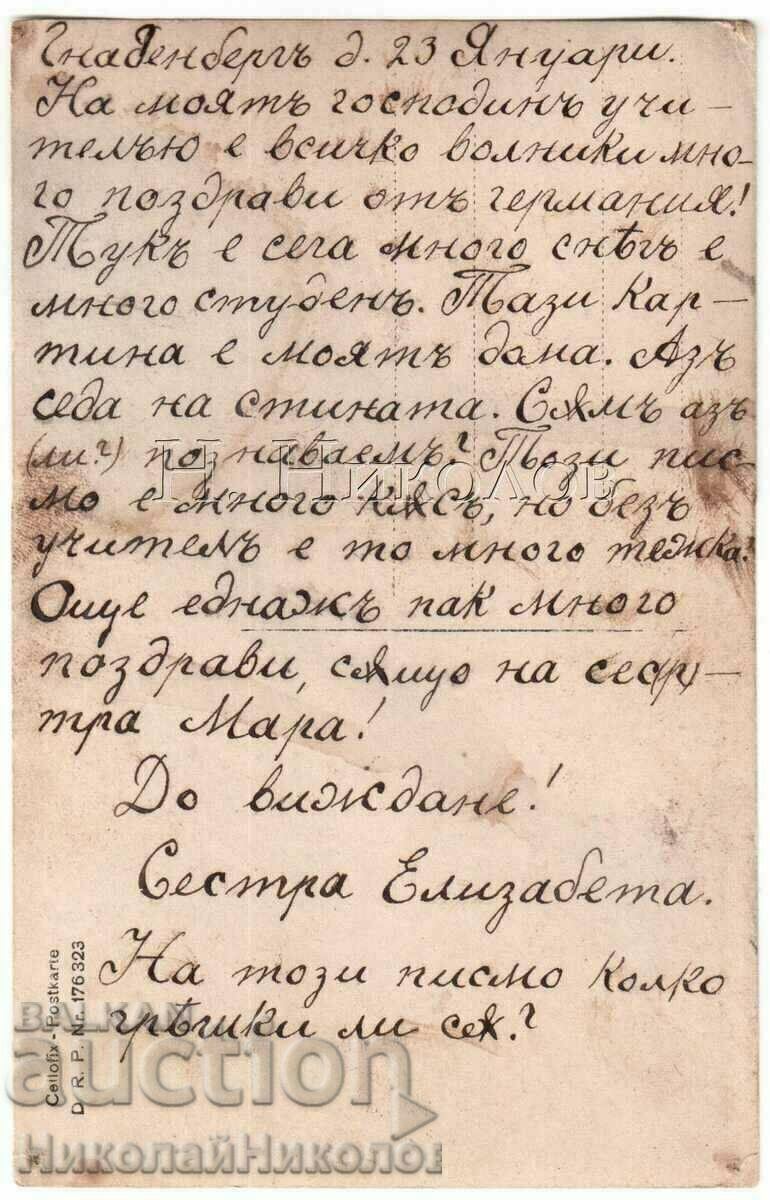 Гнаденбергъ д. 23 Януари.
На моятъ господинъ учи-
телъю е всичко волники мно-
го поздрави отъ германия!
Тукъ е сега много снѣгъ е
много студенъ. Тази кар-
тина е моятъ дома. Азъ
седа на стината. Сѫмъ азъ
(ли?) познаваемъ? Този пис-
мо е много кѫсъ, но безъ
учителъ е то много тежка!
Още еднажъ пак много
поздрави, сѫщо на сес(р)-
тра Мара!
До виждане!
Сестра Елизабета.
На този писмо колко
грѣшки ли сѫ?
Cellofix - Postkarte
D. R. P. Nr. 176323
Н. Николов
BALKAN
auction
НиколайНиколов